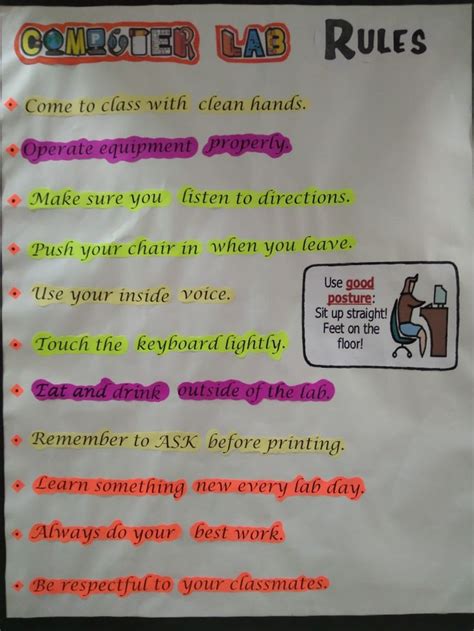 COMPUTER LAB RULES
Come to class with clean hands.
Operate equipment properly.
Make sure you listen to directions.
Push your chair in when you leave.
Use your inside voice.
Use good
posture:
Sit up straight!
Feet on the
floor!
Touch the keyboard lightly.
Eat and drink outside of the lab.
Remember to ASK before printing.
Learn something new every lab day.
Always do your best work.
Be respectful to your classmates.